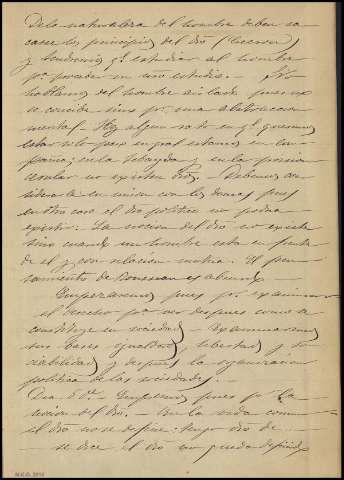 De la naturaleza del hombre deben sa-
carse los principios del dro (Ciceron)
y tendremos q. estudiar al hombre
pa. proceder en este estudio. — No
hablamos del hombre aislado pues no
se concibe sino por una abstraccion
mental. Hay algun rato en q. queremos
estar solo pero en gral estamos en com-
pañia; en la Tebayda y en la prision
celular no existen dros. — Debemos con-
siderarle en union con los demas pues
en otro caso el dro politico no podria
existir. La nocion del dro no existe
sino cuando un hombre esta en frente
de el y con relacion mutua. El pen-
samiento de Rousseau es absurdo
Empezaremos pues pr. examinar
el derecho pa. ver despues como se
constituye en sociedad — Examinaremos
sus bases igualdad, libertad y so-
ciabilidad y despues la organizacion
politica de las sociedades. —
Dia 5 Oe. — Empezemos pues por la
nocion del dro. — En la vida comun
el dro no se define: tengo dro de —
se dice el dro no puede definirse
M.C.D. 2018